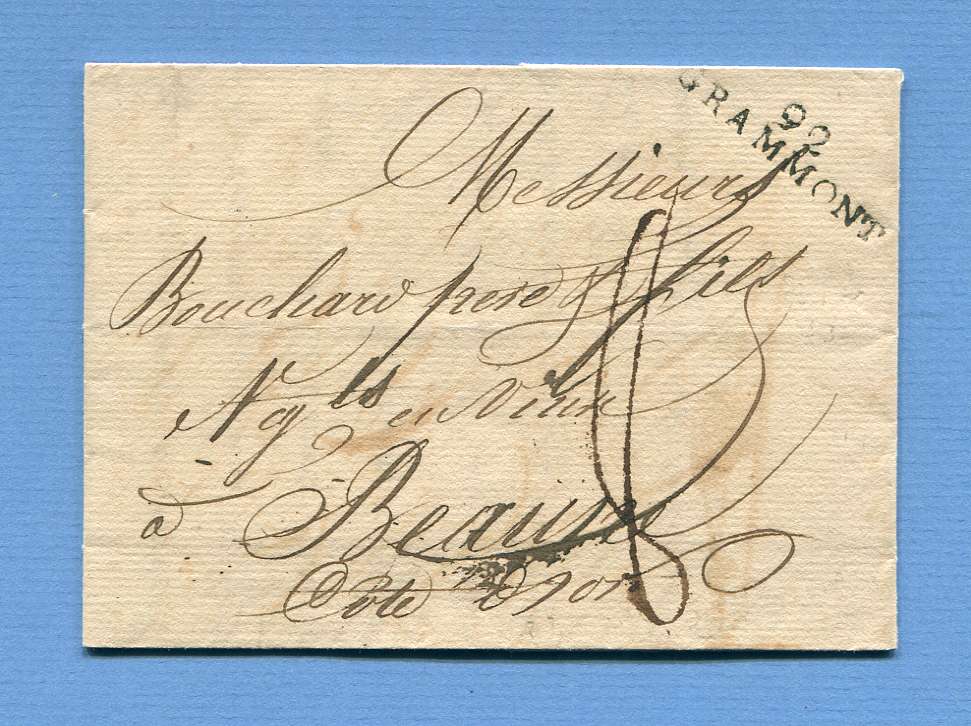 92
GRAMMONT
Messieurs
Bouchard pere & fils
Negts en Vins
à Beaune
Cote d'or
8